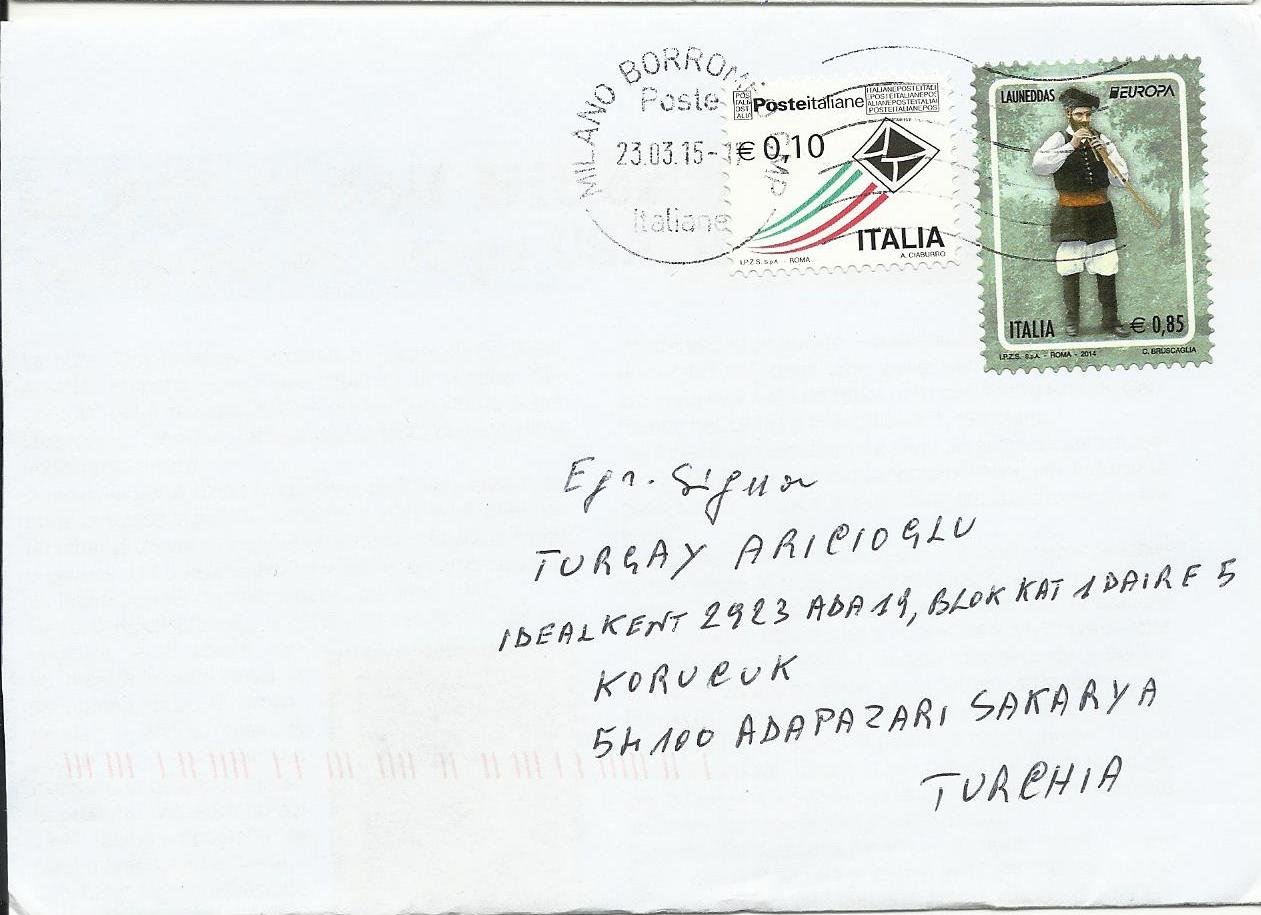 MILANO BORROMEO CMP
Poste
23.03.15-
Italiane
Posteitaliane
€ 0,10
ITALIA
I.P.Z.S. S.p.A. - ROMA
A. CIABURRO
LAUNEDDAS
EUROPA
ITALIA
€ 0,85
I.P.Z.S. S.p.A. - ROMA - 2014
C. BRUSCAGLIA
Egr. Signor
TURGAY ARICIOGLU
IDEALKENT 2923 ADA 19, BLOK KAT 1 DAIRE 5
KORUCUK
54100 ADAPAZARI SAKARYA
TURCHIA